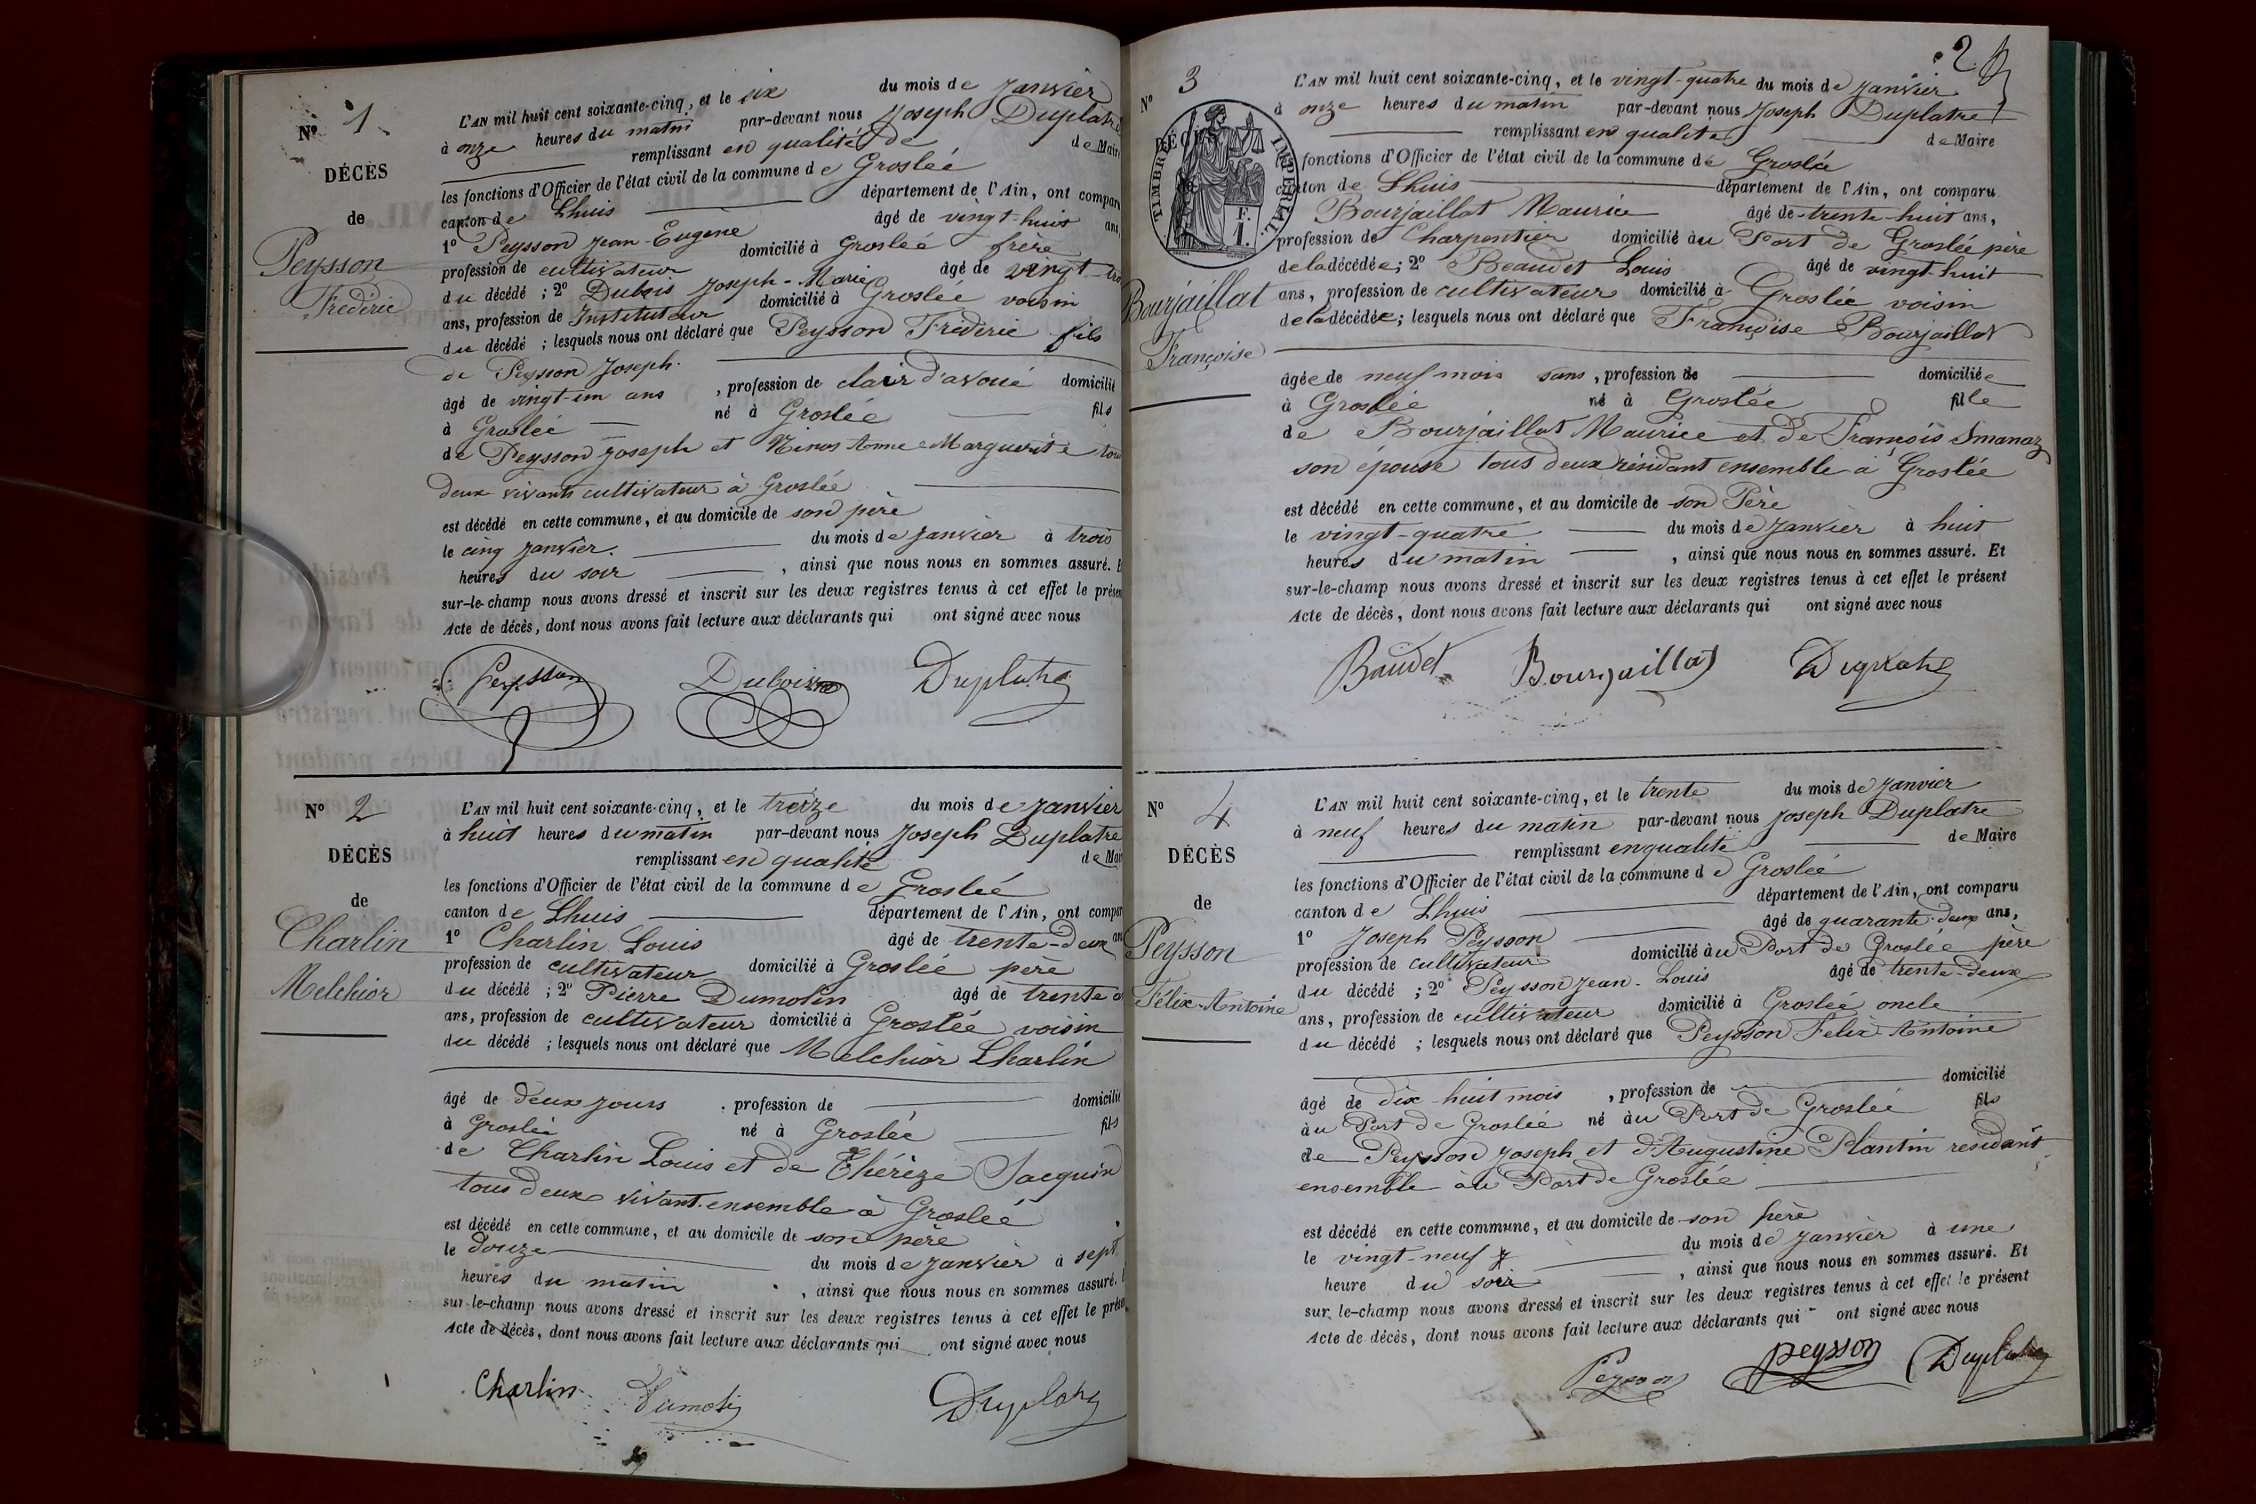 Nº 1
DÉCÈS
de
Peysson
Frédéric
L'AN mil huit cent soixante-cinq, et le six du mois de Janvier
à onze heures du matin par-devant nous Joseph Duplatre
remplissant en qualité de de Maire
les fonctions d'Officier de l'état civil de la commune de Groslée
canton de Lhuis département de l'Ain, ont comparu
1º Peysson Jean-Eugène âgé de vingt-huit ans,
profession de cultivateur domicilié à Groslée frère
du décédé ; 2º Dubois Joseph-Marie âgé de vingt-
ans, profession de Instituteur domicilié à Groslée voisin
du décédé ; lesquels nous ont déclaré que Peysson Frédéric fils
de Peysson Joseph.
âgé de vingt-un ans , profession de clair d'avoué domicilié
à Groslée né à Groslée fils
de Peysson Joseph et Anne Marguerite
deux vivants cultivateur à Groslée
est décédé en cette commune, et au domicile de son père
le cinq Janvier. du mois de Janvier à trois
heures du soir , ainsi que nous nous en sommes assuré.
sur-le-champ nous avons dressé et inscrit sur les deux registres tenus à cet effet le présent
Acte de décès, dont nous avons fait lecture aux déclarants qui ont signé avec nous
Peysson Dubois Duplatre
Nº 2
DÉCÈS
de
Charlin
Melchior
L'AN mil huit cent soixante-cinq, et le treize du mois de Janvier
à huit heures du matin par-devant nous Joseph Duplatre
remplissant en qualité de Mair
les fonctions d'Officier de l'état civil de la commune de Groslée
canton de Lhuis département de l'Ain, ont compar
1º Charlin Louis âgé de trente-deux an
profession de cultivateur domicilié à Groslée père
du décédé ; 2º Pierre Dumolin âgé de trente
ans, profession de cultivateur domicilié à Groslée voisin
du décédé ; lesquels nous ont déclaré que Melchior Charlin
âgé de deux jours , profession de domicilié
à Groslée né à Groslée fils
de Charlin Louis et de Thérèze Jacquin
tous deux vivant ensemble à Groslée
est décédé en cette commune, et au domicile de son père
le douze du mois de Janvier à sept
heures du matin , ainsi que nous nous en sommes assuré.
sur-le-champ nous avons dressé et inscrit sur les deux registres tenus à cet effet le présen
Acte de décès, dont nous avons fait lecture aux déclarants qui ont signé avec nous
Charlin Dumolin Duplatre
2
Nº 3
TIMBRE IMPERIAL.
Bourjaillat
Françoise
L'AN mil huit cent soixante-cinq, et le vingt-quatre du mois de Janvier
à onze heures du matin par-devant nous Joseph Duplatre
remplissant en qualité de Maire
fonctions d'Officier de l'état civil de la commune de Groslée
canton de Lhuis département de l'Ain, ont comparu
Bourjaillat Maurice âgé de trente-huit ans,
profession de Charpentier domicilié au Port de Groslée père
de la décédée; 2º Beaudet Louis âgé de vingt-huit
ans, profession de cultivateur domicilié à Groslée voisin
de la décédée; lesquels nous ont déclaré que Françoise Bourjaillat
âgée de neuf mois sans , profession de domiciliée
à Groslée né à Groslée fille
de Bourjaillat Maurice et de François
son épouse tous deux résidant ensemble à Groslée
est décédé en cette commune, et au domicile de son Père
le vingt-quatre du mois de Janvier à huit
heures du matin , ainsi que nous nous en sommes assuré. Et
sur-le-champ nous avons dressé et inscrit sur les deux registres tenus à cet effet le présent
Acte de décès, dont nous avons fait lecture aux déclarants qui ont signé avec nous
Baudet Bourjaillat Duplatre
Nº 4
DÉCÈS
de
Peysson
Félix-Antoine
L'AN mil huit cent soixante-cinq, et le trente du mois de Janvier
à neuf heures du matin par-devant nous Joseph Duplatre
remplissant en qualité de Maire
les fonctions d'Officier de l'état civil de la commune de Groslée
canton de Lhuis département de l'Ain, ont comparu
1º Joseph Peysson âgé de quarante-deux ans,
profession de cultivateur domicilié au Port de Groslée père
du décédé ; 2º Peysson Jean-Louis âgé de trente-deux
ans, profession de cultivateur domicilié à Groslée oncle
du décédé ; lesquels nous ont déclaré que Peysson Felix Antoine
âgé de dix huit mois , profession de domicilié
au Port de Groslée né au Port de Groslée fils
de Peysson Joseph et d'Augustine Plantin residant
ensemble au Port de Groslée
est décédé en cette commune, et au domicile de son père
le vingt-neuf du mois de Janvier à une
heure du soir , ainsi que nous nous en sommes assuré. Et
sur-le-champ nous avons dressé et inscrit sur les deux registres tenus à cet effet le présent
Acte de décès, dont nous avons fait lecture aux déclarants qui ont signé avec nous
Peysson peysson Duplatre